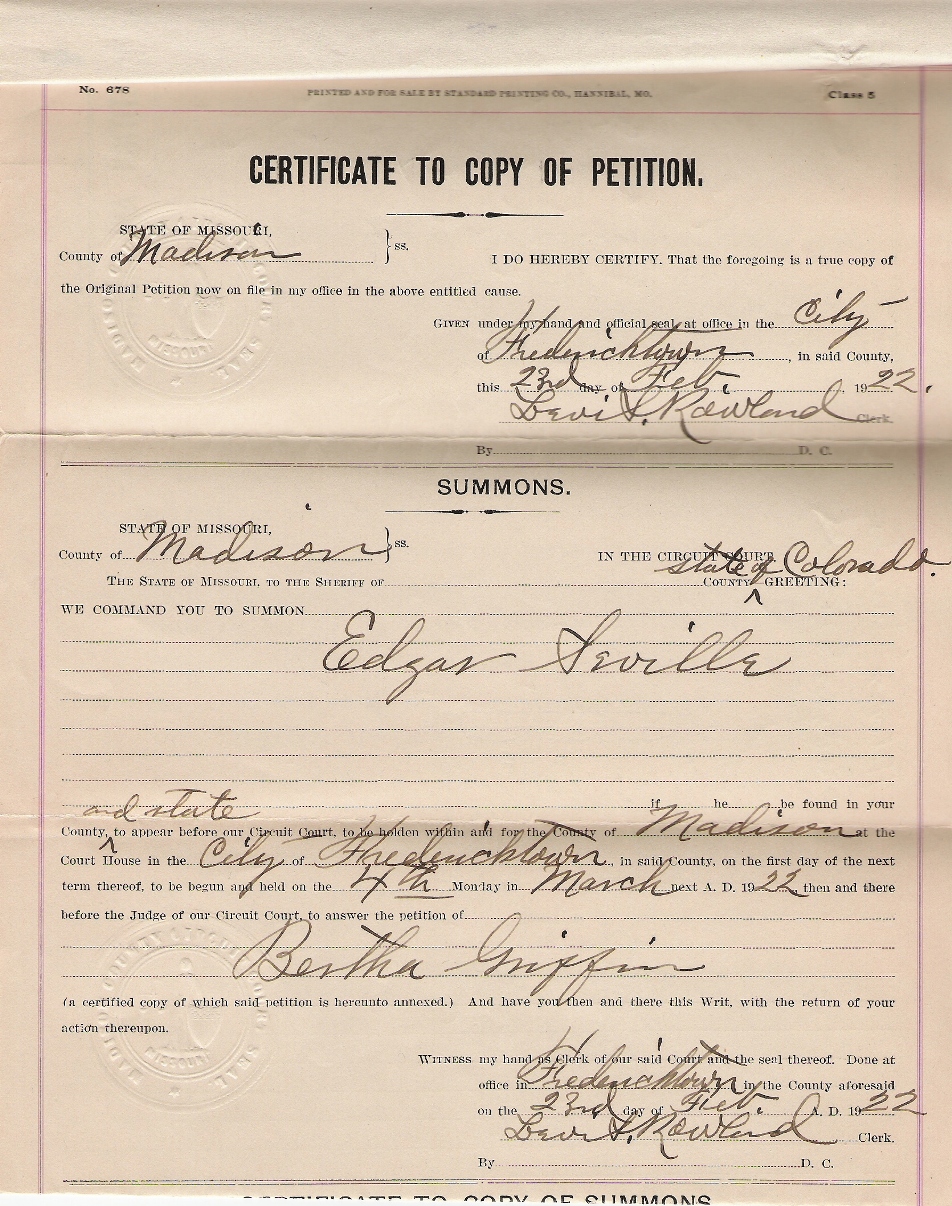 No. 678 PRINTED AND FOR SALE BY STANDARD PRINTING CO., HANNIBAL, MO. Class 5
CERTIFICATE TO COPY OF PETITION.
STATE OF MISSOURI,
County of Madison } ss.
I DO HEREBY CERTIFY. That the foregoing is a true copy of
the Original Petition now on file in my office in the above entitled cause.
GIVEN under my hand and official seal, at office in the City
of Fredericktown, in said County,
this 23rd day of Feb. 1922.
Levi S. Rowland Clerk.
By D. C.
SUMMONS.
STATE OF MISSOURI,
County of Madison } ss.
IN THE CIRCUIT COURT
state of Colorado.
THE STATE OF MISSOURI, TO THE SHERIFF OF COUNTY ^ GREETING:
WE COMMAND YOU TO SUMMON
Edgar Seville
and state if he be found in your
County, ^ to appear before our Circuit Court, to be holden within and for the County of Madison at the
Court House in the City of Fredericktown, in said County, on the first day of the next
term thereof, to be begun and held on the 4th Monday in March next A. D. 1922 then and there
before the Judge of our Circuit Court, to answer the petition of
Bertha Griffin
(a certified copy of which said petition is hereunto annexed.) And have you then and there this Writ, with the return of your
action thereupon.
WITNESS my hand as Clerk of our said Court and the seal thereof. Done at
office in Fredericktown in the County aforesaid
on the 23rd day of Feb. A. D. 1922
Levi S. Rowland Clerk.
By D. C.
CERTIFICATE TO COPY OF SUMMONS